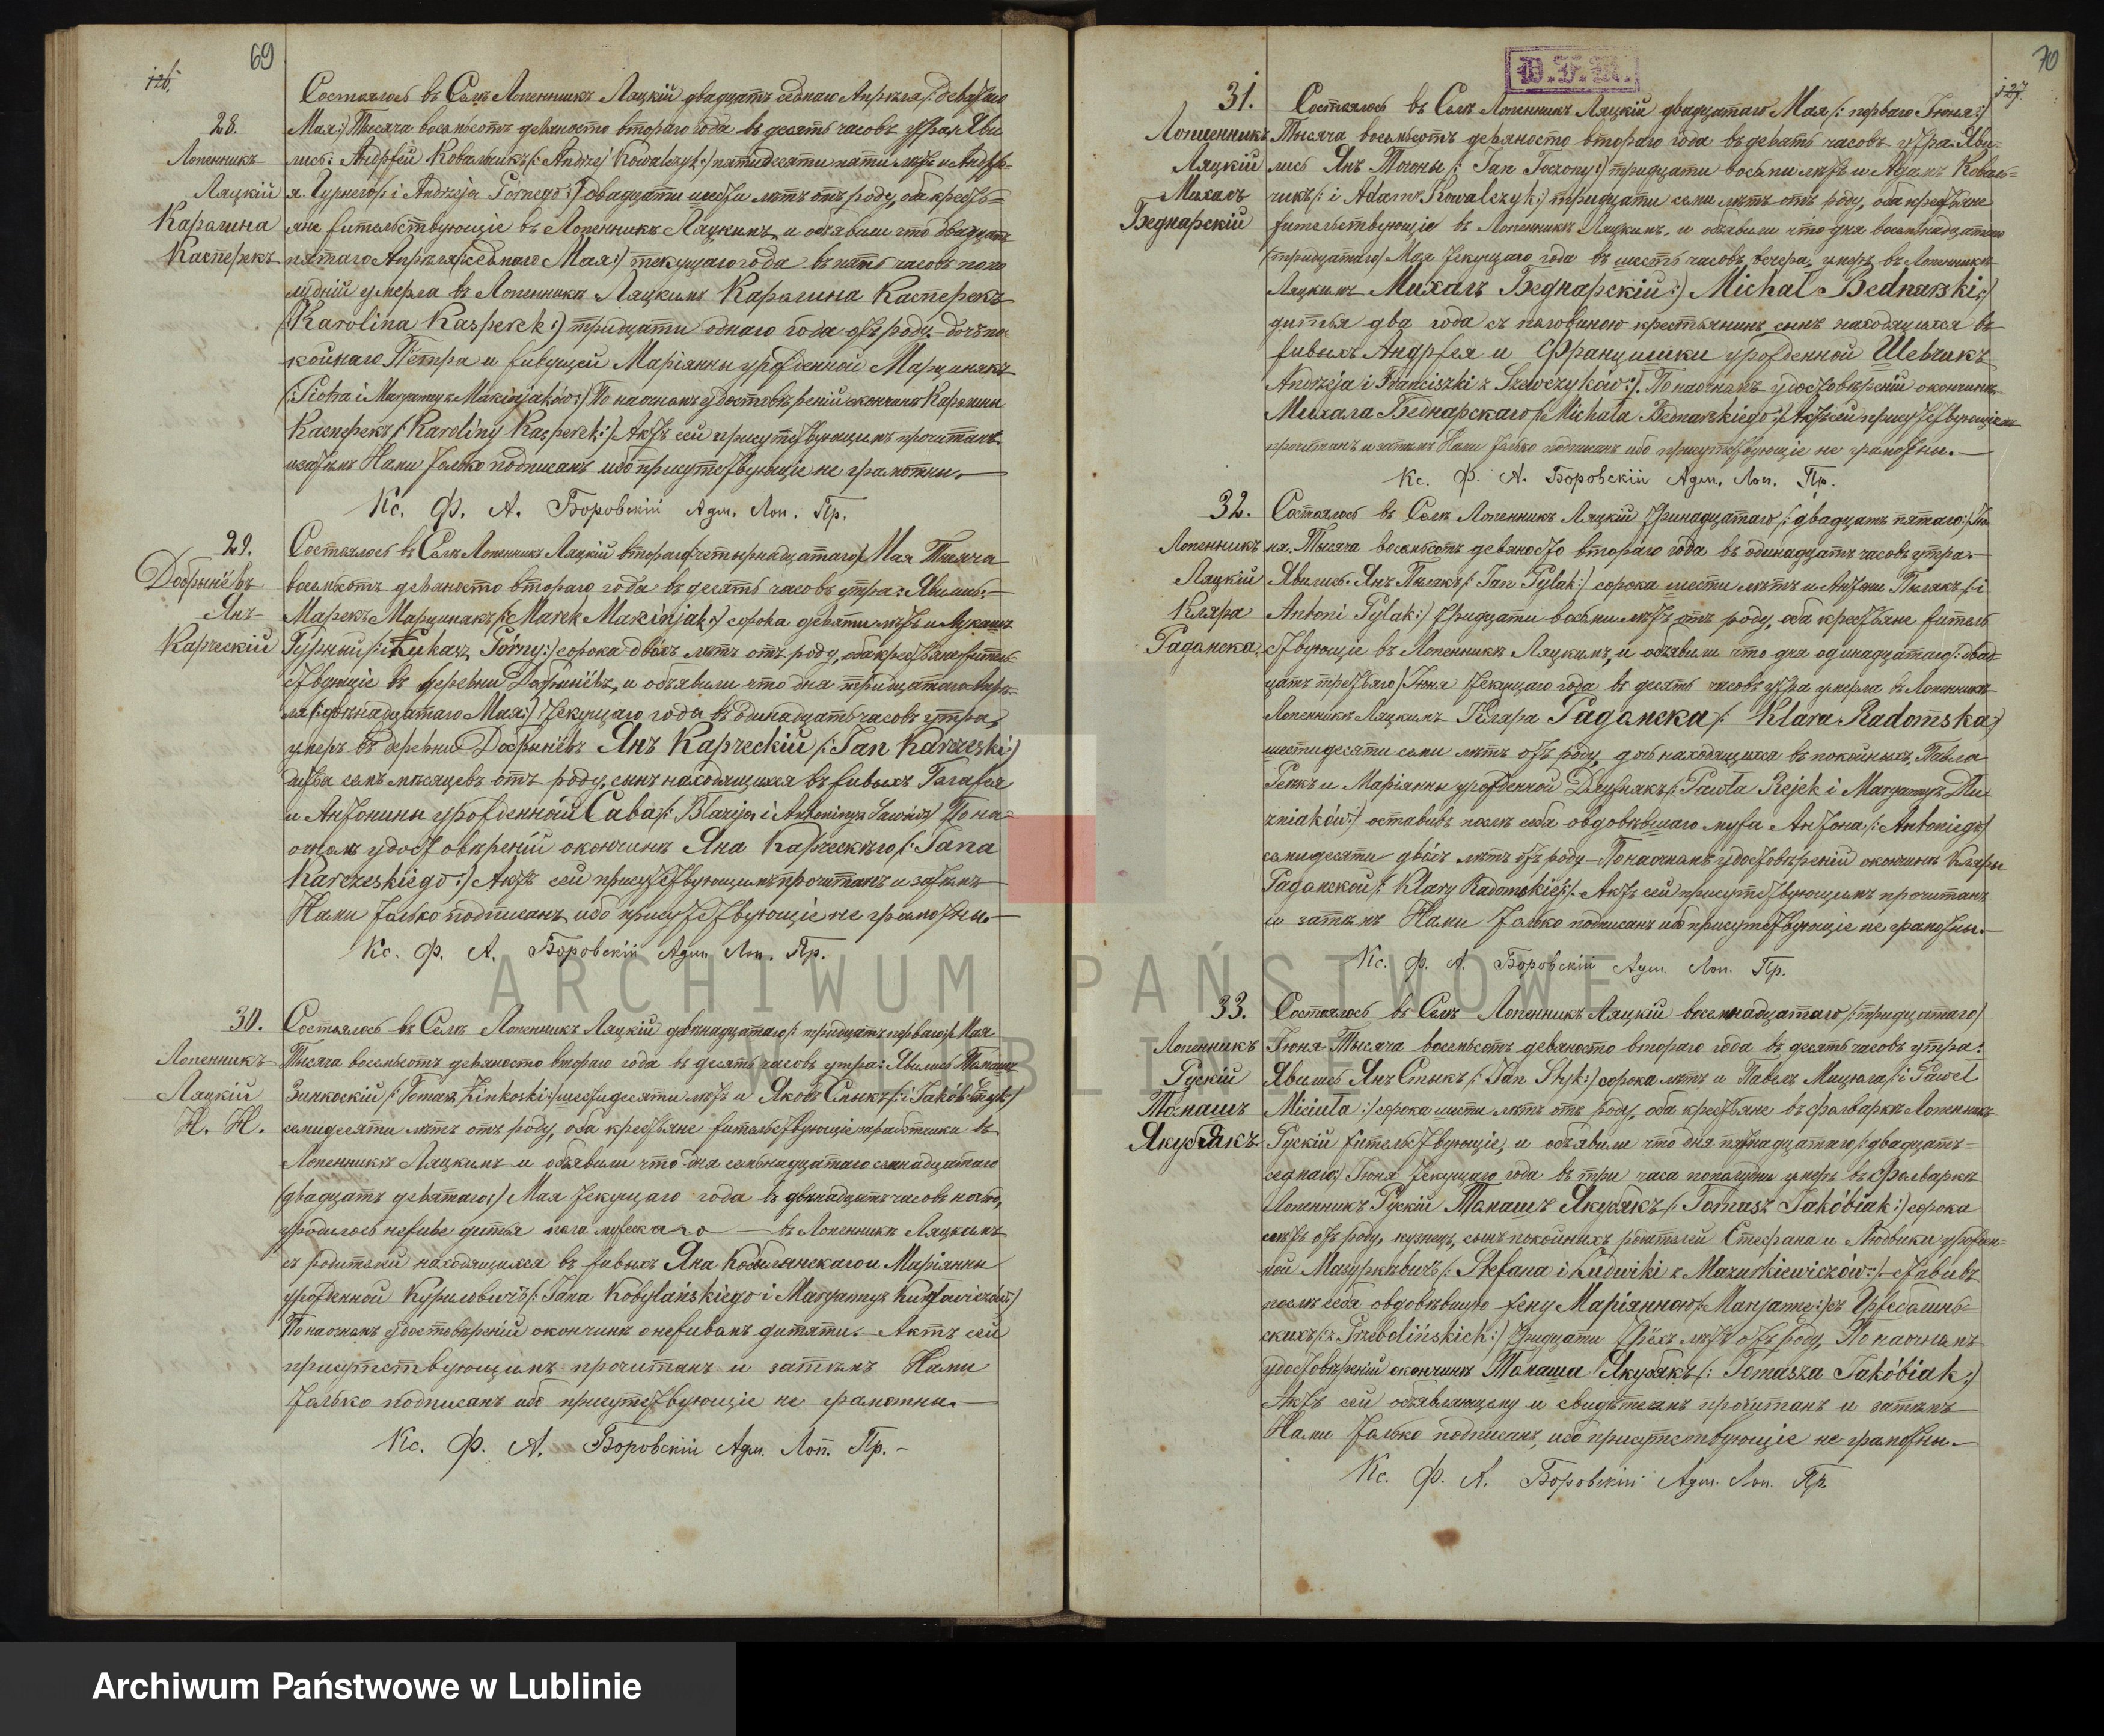 69
126.
Состоялось въ Селѣ Лопенникъ Ляцкій двадцать седьмаго Апрѣля /: девятаго
28.
Мая :/ Тысяча восемьсотъ девяносто втораго года въ десять часовъ утра. Яви
Лопенникъ
лись: Андрѣй Ковальчикъ /: Andrzej Kowalczyk :/ пятидесяти пяти лѣтъ и Андрѣ-
Ляцкій
я Гурнего /: i Andrzeja Górnego :/ двадцати шести лѣтъ отъ роду, оба кресть-
Каролина
яне жительствующіе въ Лопенникѣ Ляцкимъ, и объявили что двадцать
Касперекъ
пятаго Апрѣля /: седьмаго Мая :/ текущаго года въ пять часовъ попо
лудній умерла въ Лопенникѣ Ляцкимъ Каролина Касперекъ
/: Karolina Kasperek :/ тридцати однаго года отъ роду. дочь по
койнаго Петра и живущей Маріянны урожденной Марцинякъ
/: Piotra i Maryanny z Marcinjaków :/ По наочномъ удостовѣреніи окончинѣ Каролины
Касперекъ /: Karoliny Kasperek :/ Актъ сей присутствующимъ прочитанъ
и затѣмъ Нами только подписанъ ибо присутствующіе не грамотны.
Кс. Ф. А. Боровскій Адм. Лоп. Пр.
29.
Состоялось въ Селѣ Лопенникъ Ляцкій втораго /: четырнадцатаго :/ Мая Тысяча
Добрынёвъ
восемьсотъ девяносто втораго года въ десять часовъ утра: Явились:
Янъ
Марекъ Марцинякъ /: Marek Marcinjak :/ сорока девяти лѣтъ и Лукашъ
Карческій
Гурный /: i Łukasz Górny :/ сорока двохъ лѣтъ отъ роду, оба крестьяне житель-
ствующіе въ деревни Добрынёвъ, и объявили что дня тридцатаго Апрѣ-
ля /: двѣнадцатаго Мая :/ текущаго года въ одинадцать часовъ утра,
умеръ въ деревни Добрынёвъ Янъ Карческій /: Jan Karczeski :/
дитья семь мѣсяцевъ отъ роду, сынъ находящихся въ живыхъ
и Антонины урожденной Саба /: Błażeja i Antoniny z Sawów :/ По на-
очномъ удостовѣреніи окончинѣ Яна Карческаго /: Jana
Karczeskiego :/ Актъ сей присутствующимъ прочитанъ и затѣмъ
Нами только подписанъ ибо присутствующіе не грамотны.
Кс. Ф. А. Боровскій Адм. Лоп. Пр.
30.
Состоялось въ Селѣ Лопенникъ Ляцкій девятнадцатаго /: тридцать перваго :/ Мая
Лопенникъ
Тысяча восемьсотъ девяносто втораго года въ десять часовъ утра: Явились Томашъ
Ляцкій
Зинкоскій /: Tomasz Zinkoski :/ шестидесяти лѣтъ и Яковъ Стыкъ /: i Jakób Styk :/
Н. Н.
семидесяти лѣтъ отъ роду, оба крестьяне жительствующіе заработники въ
Лопенникѣ Ляцкимъ и объявили что дня семьнадцатаго семнадцатаго
/двадцать девятаго :/ Мая текущаго года въ двѣнадцать часовъ ночью,
уродилось неживе дитья пола мужескаго — въ Лопенникѣ Ляцкимъ
съ родителей находящихся въ живыхъ Яна Кобылянскаго и Маріянны
урожденной Куриловичъ /: Jana Kobylańskiego i Maryanny z Kuryłowiczów :/
По наочномъ удостовѣреніи окончинѣ о неживомъ дитяти. Актъ сей
присутствующимъ прочитанъ и затѣмъ Нами
только подписанъ ибо присутствующіе не грамотны.
Кс. Ф. А. Боровскій Адм. Лоп. Пр.
70
127.
31.
Состоялось въ Селѣ Лопенникъ Ляцкій двадцатаго Мая /: перваго Іюня :/
Лопенникъ
Тысяча восемьсотъ девяносто втораго года въ девять часовъ утра. Яви-
Ляцкій
лись Янъ Точоны /: Jan Toczony :/ тридцати восьми лѣтъ и Адамъ Коваль-
Михалъ
чикъ /: i Adam Kowalczyk :/ тридцати семи лѣтъ отъ роду, оба крестьяне
Беднарскій
жительствующіе въ Лопенникѣ Ляцкимъ, и объявили что дня восемьнадцатаго
/тридцатаго/ Мая текущаго года въ шесть часовъ вечера, умеръ въ Лопенникѣ
Ляцкимъ Михалъ Беднарскій :/ Michał Bednarski :/
дитья два года съ половиною крестьянинъ сынъ находящихся въ
живыхъ Андрѣея и Францишки урожденной Шевчикъ
Andrzeja i Franciszki z Szewczyków :/. По наочномъ удостовѣреніи окончинѣ
Михала Беднарскаго /: Michała Bednarskiego :/ Актъ сей присутствующимъ
прочитанъ и затѣмъ Нами только подписанъ ибо присутствующіе не грамотны.
Кс. Ф. А. Боровскій Адм. Лоп. Пр.
32.
Состоялось въ Селѣ Лопенникъ Ляцкій тринадцатаго /: двадцать пятаго :/ Iю
Лопенникъ
ня. Тысяча восемьсотъ девяносто втораго года въ одинадцать часовъ утра.
Ляцкій
Явились Янъ Пылакъ /: Jan Pylak :/ сорока шести лѣтъ и Антони Пылакъ /: i
Кляра
Antoni Pylak :/ тридцати восьми лѣтъ отъ роду, оба крестьяне житель
Радомска
ствующіе въ Лопенникѣ Ляцкимъ, и объявили что дня одинадцатаго /: двад-
цать третьяго/ Іюня текущаго года въ десять часовъ утра умерла въ Лопенникѣ
Лопенникѣ Ляцкимъ Кляра Радомска /: Klara Radomska :/
шестидесяти семи лѣтъ отъ роду, дочь находящихся въ покойныхъ, Павла
и Маріянны урожденной /: Pawła Rejek i Maryanny z Dłu
żniaków :/ оставивъ послѣ себя овдовѣвшаго мужа Антона /: Antoniego/
семидесяти двохъ лѣтъ отъ роду — По наочномъ удостовѣреніи окончинѣ Кляры
Радомской /: Klary Radomskiej :/. Актъ сей присутствующимъ прочитанъ
и затѣмъ Нами только подписанъ ибо присутствующіе не грамотны.
Кс. Ф. А. Боровскій Адм. Лоп. Пр.
33.
Состоялось въ Селѣ Лопенникъ Ляцкій восемнадцатаго /: тридцатаго/
Лопенникъ
Іюня Тысяча восемьсотъ девяносто втораго года въ десять часовъ утра:
Рускій
Явились Янъ Стыкъ /: Jan Styk :/ сорока лѣтъ и Павелъ Мицюла /: i Paweł
Томашъ
Miciuła :/ сорока шести лѣтъ отъ роду, оба крестьяне въ фольваркѣ Лопенникъ
Якубякъ
Рускій жительствующіе, и объявили что дня пятнадцатаго /: двадцать
седмаго :/ Іюня текущаго года въ три часа пополудни умеръ въ Фольваркѣ
Лопенникъ Рускій Томашъ Якубякъ /: Tomasz Jakóbiak :/ сорока
лѣтъ отъ роду, кузнецъ, сынъ покойныхъ родителей Стефана и Людвики урожден-
ной Мазуркѣвичъ /: Stefana i Ludwiki z Mazurkiewiczów :/ — ставивъ
послѣ себя овдовѣвшую жену Маріянною /: Maryannę :/ съ Пржеболинь-
скихъ /: z Przebolińskich :/ тридцати трёхъ лѣтъ отъ роду, По наочномъ
удостовѣреніи окончинѣ Томаша Якубякъ /: Tomasza Jakóbiak :/
Актъ сей объявляющему и свидѣтелямъ прочитанъ и затѣмъ
Нами только подписанъ, ибо присутствующіе не грамотны.
Кс. Ф. А. Боровскій Адм. Лоп. Пр.
ARCHIWUM PAŃSTWOWE
W LUBLINIE
Archiwum Państwowe w Lublinie